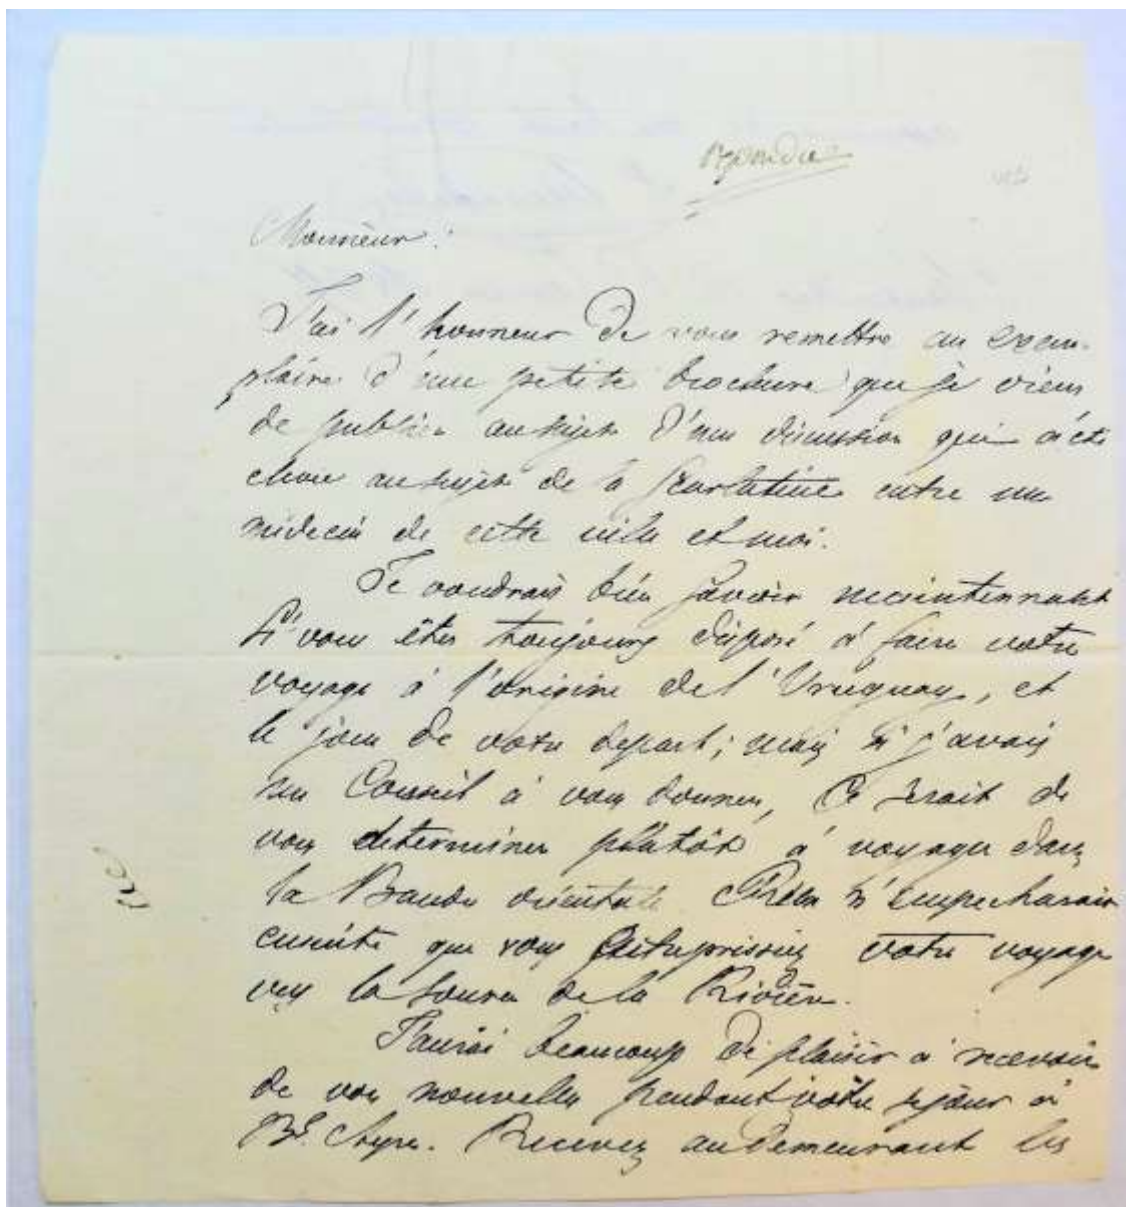 répondu
Monsieur:
J'ai l'honneur de vous remettre un exem-
plaire d'une petite brochure que je viens
de publier au sujet d'une discussion qui a été
au sujet de la Scarlatine entre un
médecin de cette ville et moi.
Je voudrais bien savoir maintennant
si vous êtes toujours disposé à faire votre
voyage à l'origine de l'Uruguay, et
le jour de votre depart; mais si j'avais
un Conseil à vous donner, Ce serait de
vous determiner plutôt à voyager dans
la Bande orientale. Rien n'empecherait
ensuite que vous entreprissiez votre voyage
vers la source de la Rivière.
J'aurai beaucoup de plaisir à recevoir
de vos nouvelles pendant votre sejour à
Bs. Ayres. Recevez au demeurant les